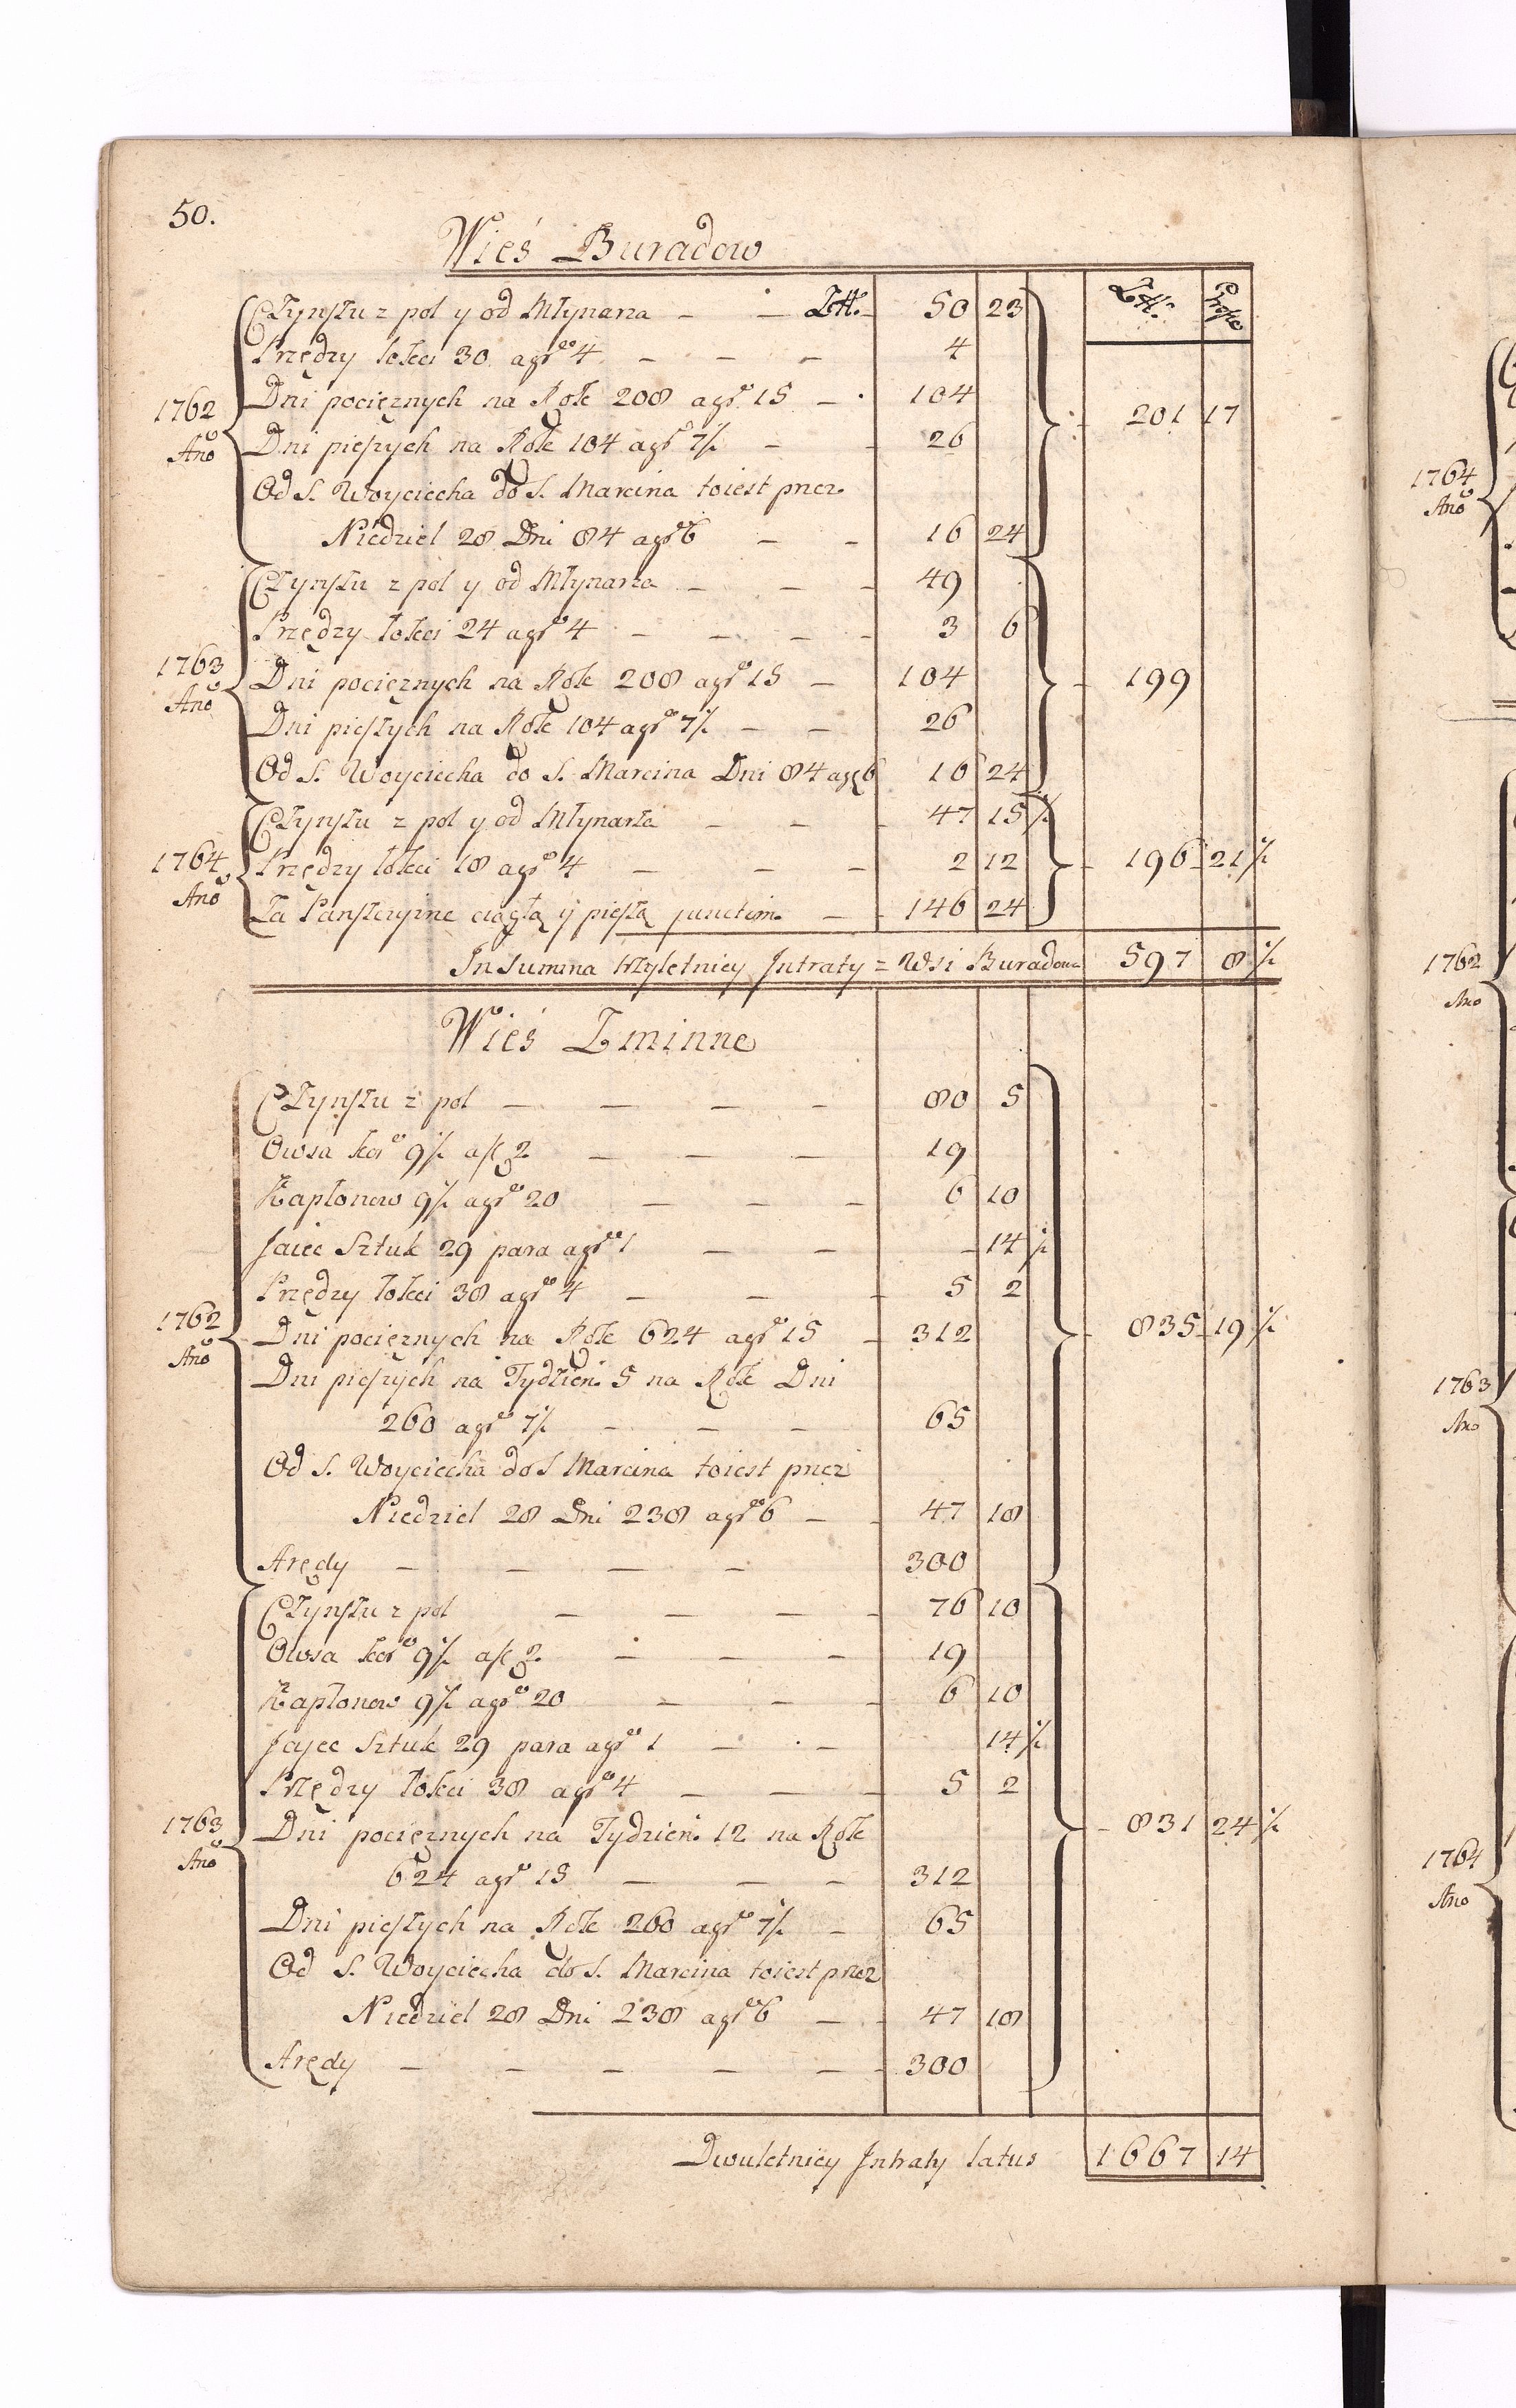 50.
Wieś Buradow
Złł. Grosze
Czynszu z pol y od Młynarza — — Złł. 50 23
Przędzy łokci 30 a gr 4 — — — 4
1762 Dni pociężnych na Rok 208 a gr 15 — 104 201 17
Ano Dni pieszych na Rok 104 a gr 7½ — 26
Od S. Woyciecha do S. Marcina toiest przez
Niedziel 28 Dni 84 a gr 6 — — 16 24
Czynszu z pol y od Młynarza — — — 49
Przędzy łokci 24 a gr 4 — — — — 3 6
1763 Dni pociężnych na Rok 208 a gr 15 — 104 — 199
Ano Dni pieszych na Rok 104 a gr 7½ — — 26
Od S. Woyciecha do S. Marcina Dni 84 a gr 6 16 24
Czynszu z pol y od Młynarza — — — 47 15½
1764 Przędzy łokci 18 a gr 4 — — — 2 12 — 196 21½
Ano Za Panszczyzne ciągłą y pieszą junctim — — 146 24
In Summa trzyletniey Intraty z Wsi Buradowa 597 8½
Wieś Zminne
Czynszu z pol — — — — 80 5
Owsa kor 9½ a f 2 — — — 19
Kapłonow 9½ a gr 20 — — — 6 10
Jaiec Sztuk 29 para a gr 1 — — — 14½
Przędzy łokci 38 a gr 4 — — — 5 2
1762 Dni pociężnych na Rok 624 a gr 15 — 312 — 835 19½
Ano Dni pieszych na Tydzień 5 na Rok Dni
260 a gr 7½ — — — 65
Od S. Woyciecha do S Marcina toiest przez
Niedziel 28 Dni 238 a gr 6 — — 47 18
Arędy — — — — 300
Czynszu z pol — — — — 76 10
Owsa kor 9½ a f 2 — — — 19
Kapłonow 9½ a gr 20 — — — 6 10
Jayec Sztuk 29 para a gr 1 — — 14½
Przędzy łokci 38 a gr 4 — — — 5 2
1763 Dni pociężnych na Tydzień 12 na Rok — 831 24½
Ano 624 a gr 15 — — — 312
Dni pieszych na Rok 260 a gr 7½ — 65
Od S. Woyciecha do S. Marcina toiest przez
Niedziel 28 Dni 238 a gr 6 — — 47 18
Arędy — — — — — 300
Dwuletniey Intraty latus 1667 14
1764
Ano
1762
Ano
1763
Ano
1764
Ano